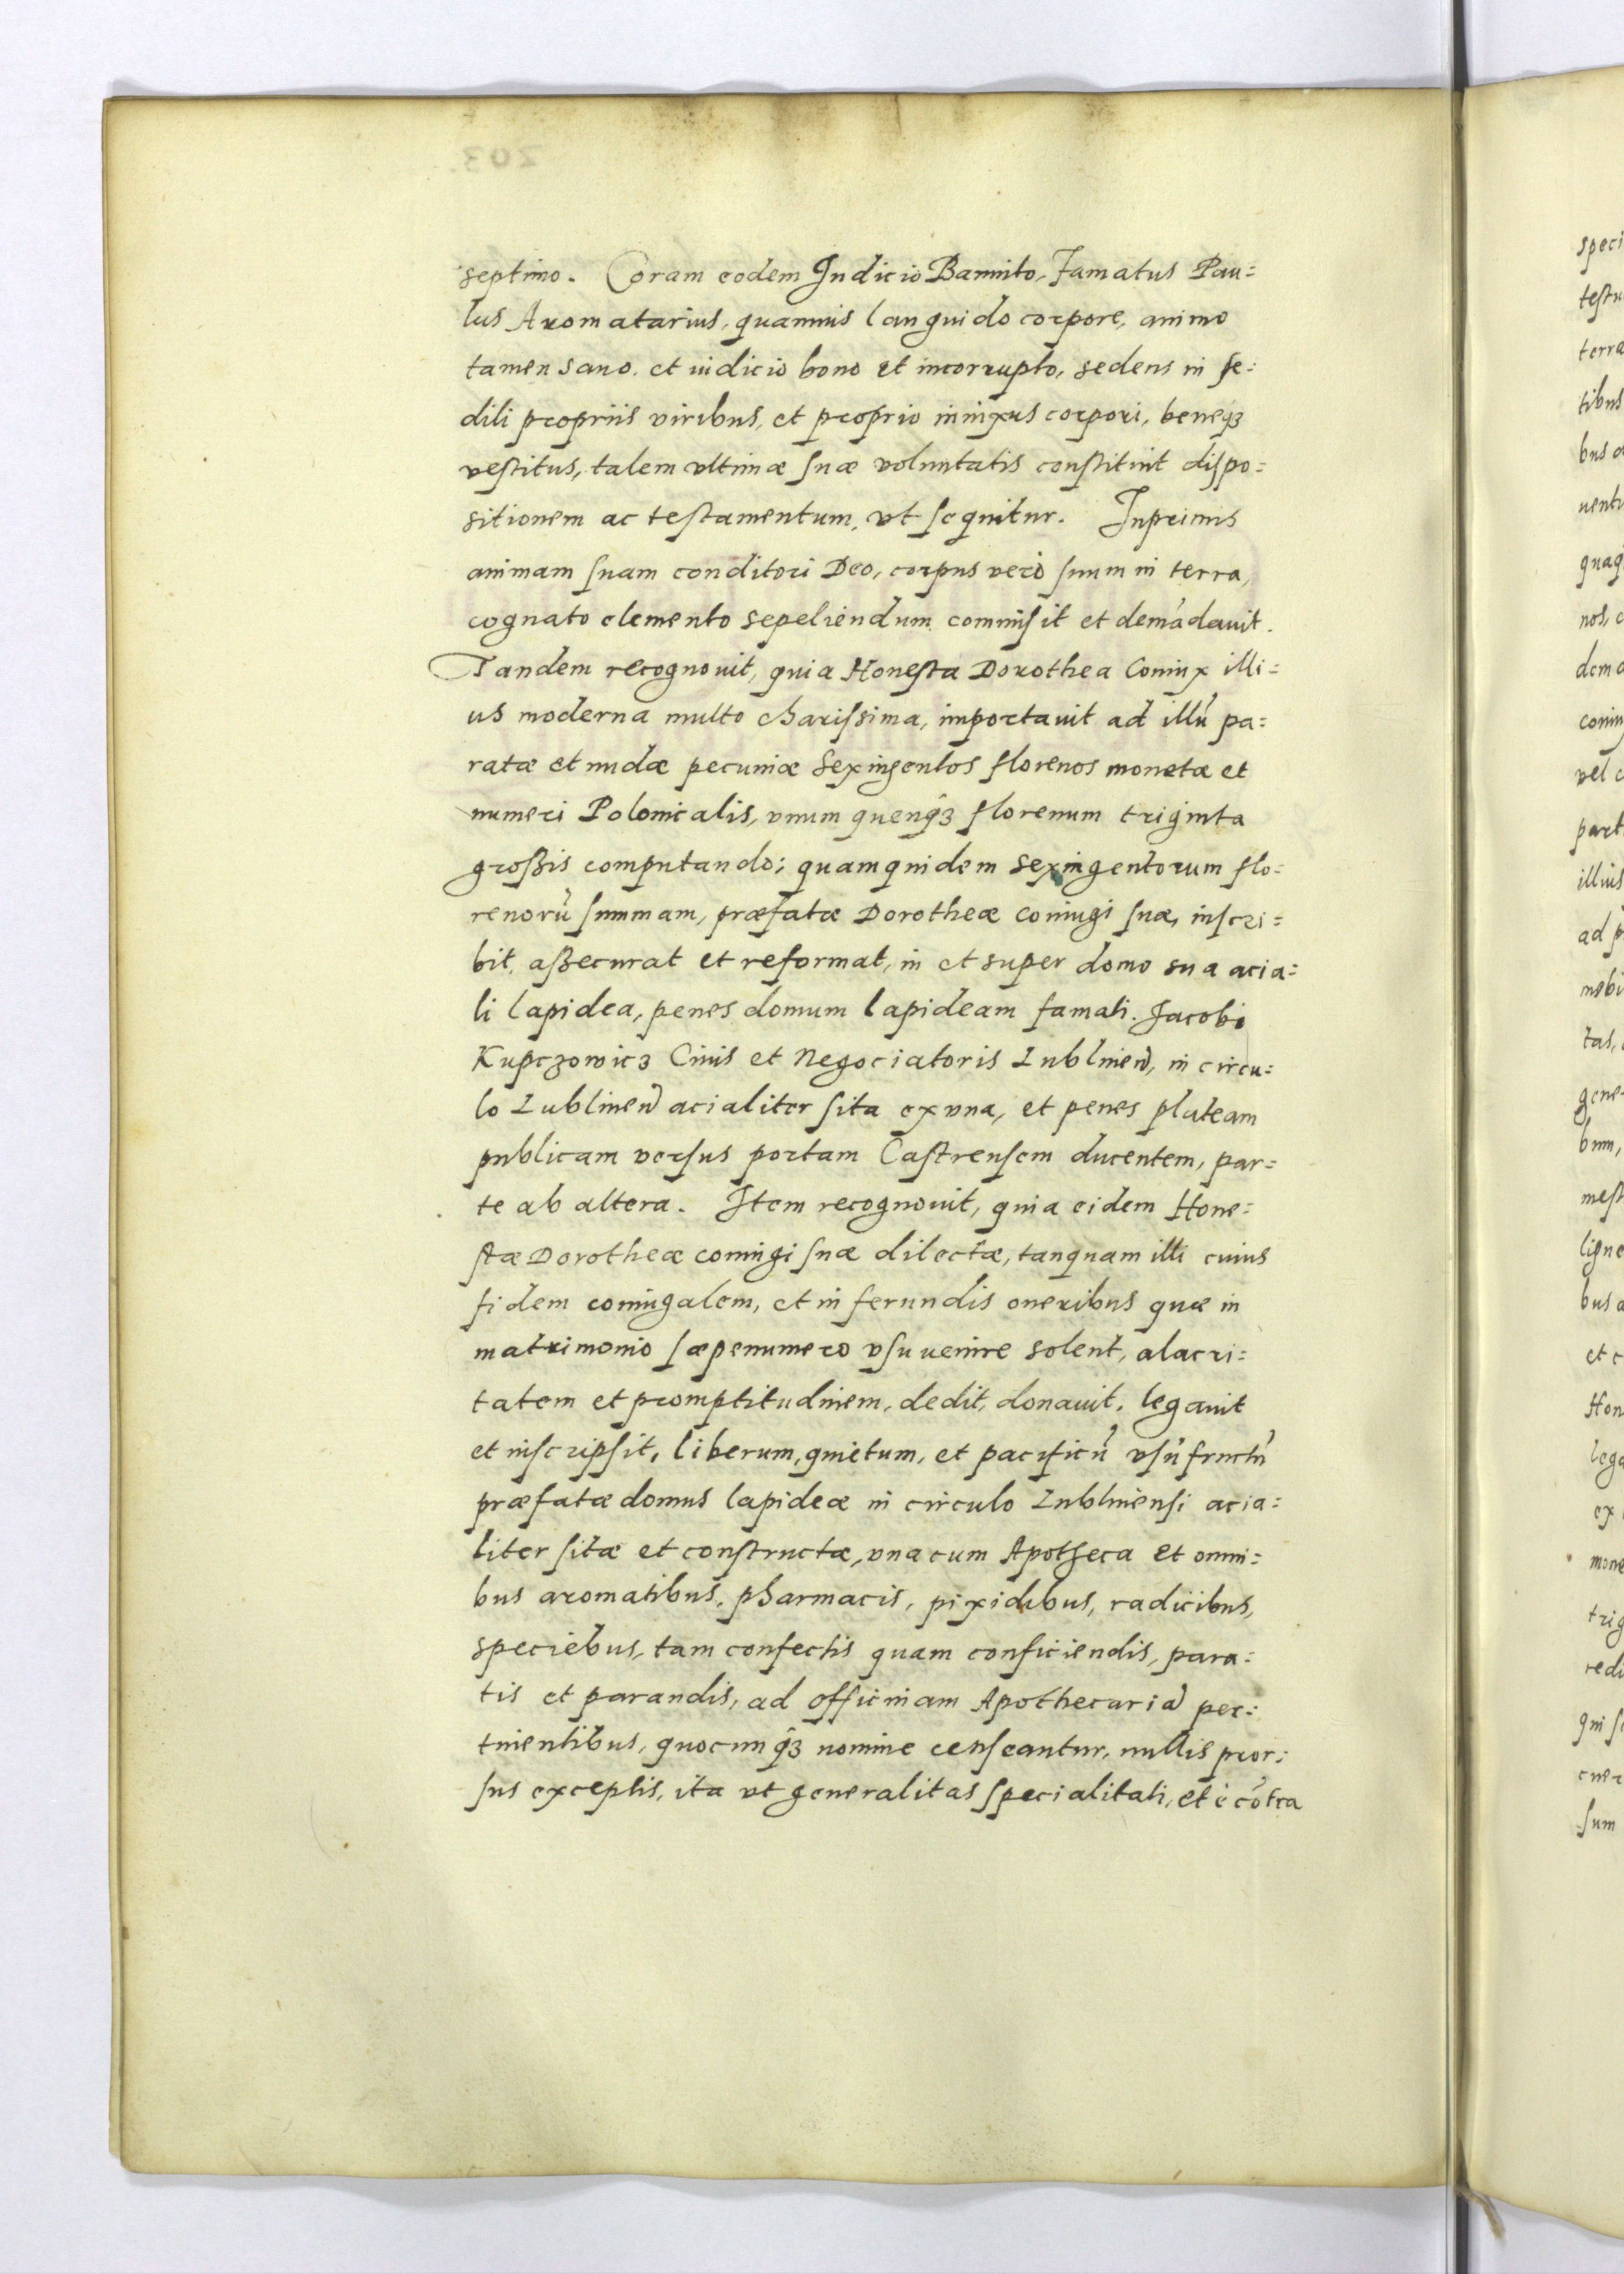 septimo. Coram eodem Iudicio Bannito, Famatus Pau=
lus Aromatarius, quamuis languido corpore, animo
tamen sano, et iudicio bono et incorrupto, sedens in se=
dili propriis viribus, et proprio innixus corpori, beneqꝫ
vestitus, talem vltimæ suæ voluntatis constituit dispo=
sitionem ac testamentum, vt sequitur. Inprimis
animam suam conditori Deo, corpus verò suum in terra,
cognato elemento sepeliendum commisit et demādauit.
Tandem recognouit, quia Honesta Dorothea Coniux illi=
us moderna multo charissima, importauit ad illū pa=
ratæ et nudæ pecuniæ Sexingentos florenos monetæ et
numeri Polonicalis, vnum quenqꝫ florenum triginta
großis computando; quamquidem sexingentorum flo=
renorū summam, præfatæ Dorotheæ coniugi suæ, inscri=
bit, aßecurat et reformat, in et super domo sua acia=
li lapidea, penes domum lapideam famati. Jacobi
Kupczowicz Ciuis et Negociatoris Lublinen̄, in circu=
lo Lublinen̄ acialiter sita ex vna, et penes plateam
publicam versus portam Castrensem ducentem, par=
te ab altera. Item recognouit, quia eidem Hone=
stæ Dorotheæ coniugi suæ dilectæ, tanquam illi cuius
fidem coniugalem, et in ferundis oneribus quæ in
matrimonio sæpenumero vsu uenire solent, alacri=
tatem et promptitudinem, dedit, donauit, legauit
et inscripsit, liberum, quietum, et pacificū vsūfructū
præfatæ domus lapideæ in circulo Lublinensi acia=
liter sitæ et constructæ, vna cum Apotheca et omni=
bus aromatibus, pharmacis, pixidibus, radicibus,
speciebus, tam confectis quam conficiendis, para=
tis et parandis, ad officinam Apothecariā per=
tinentibus, quocunqꝫ nomine censeantur, nullis pror=
sus exceptis, ita vt generalitas specialitati, et è cōtra